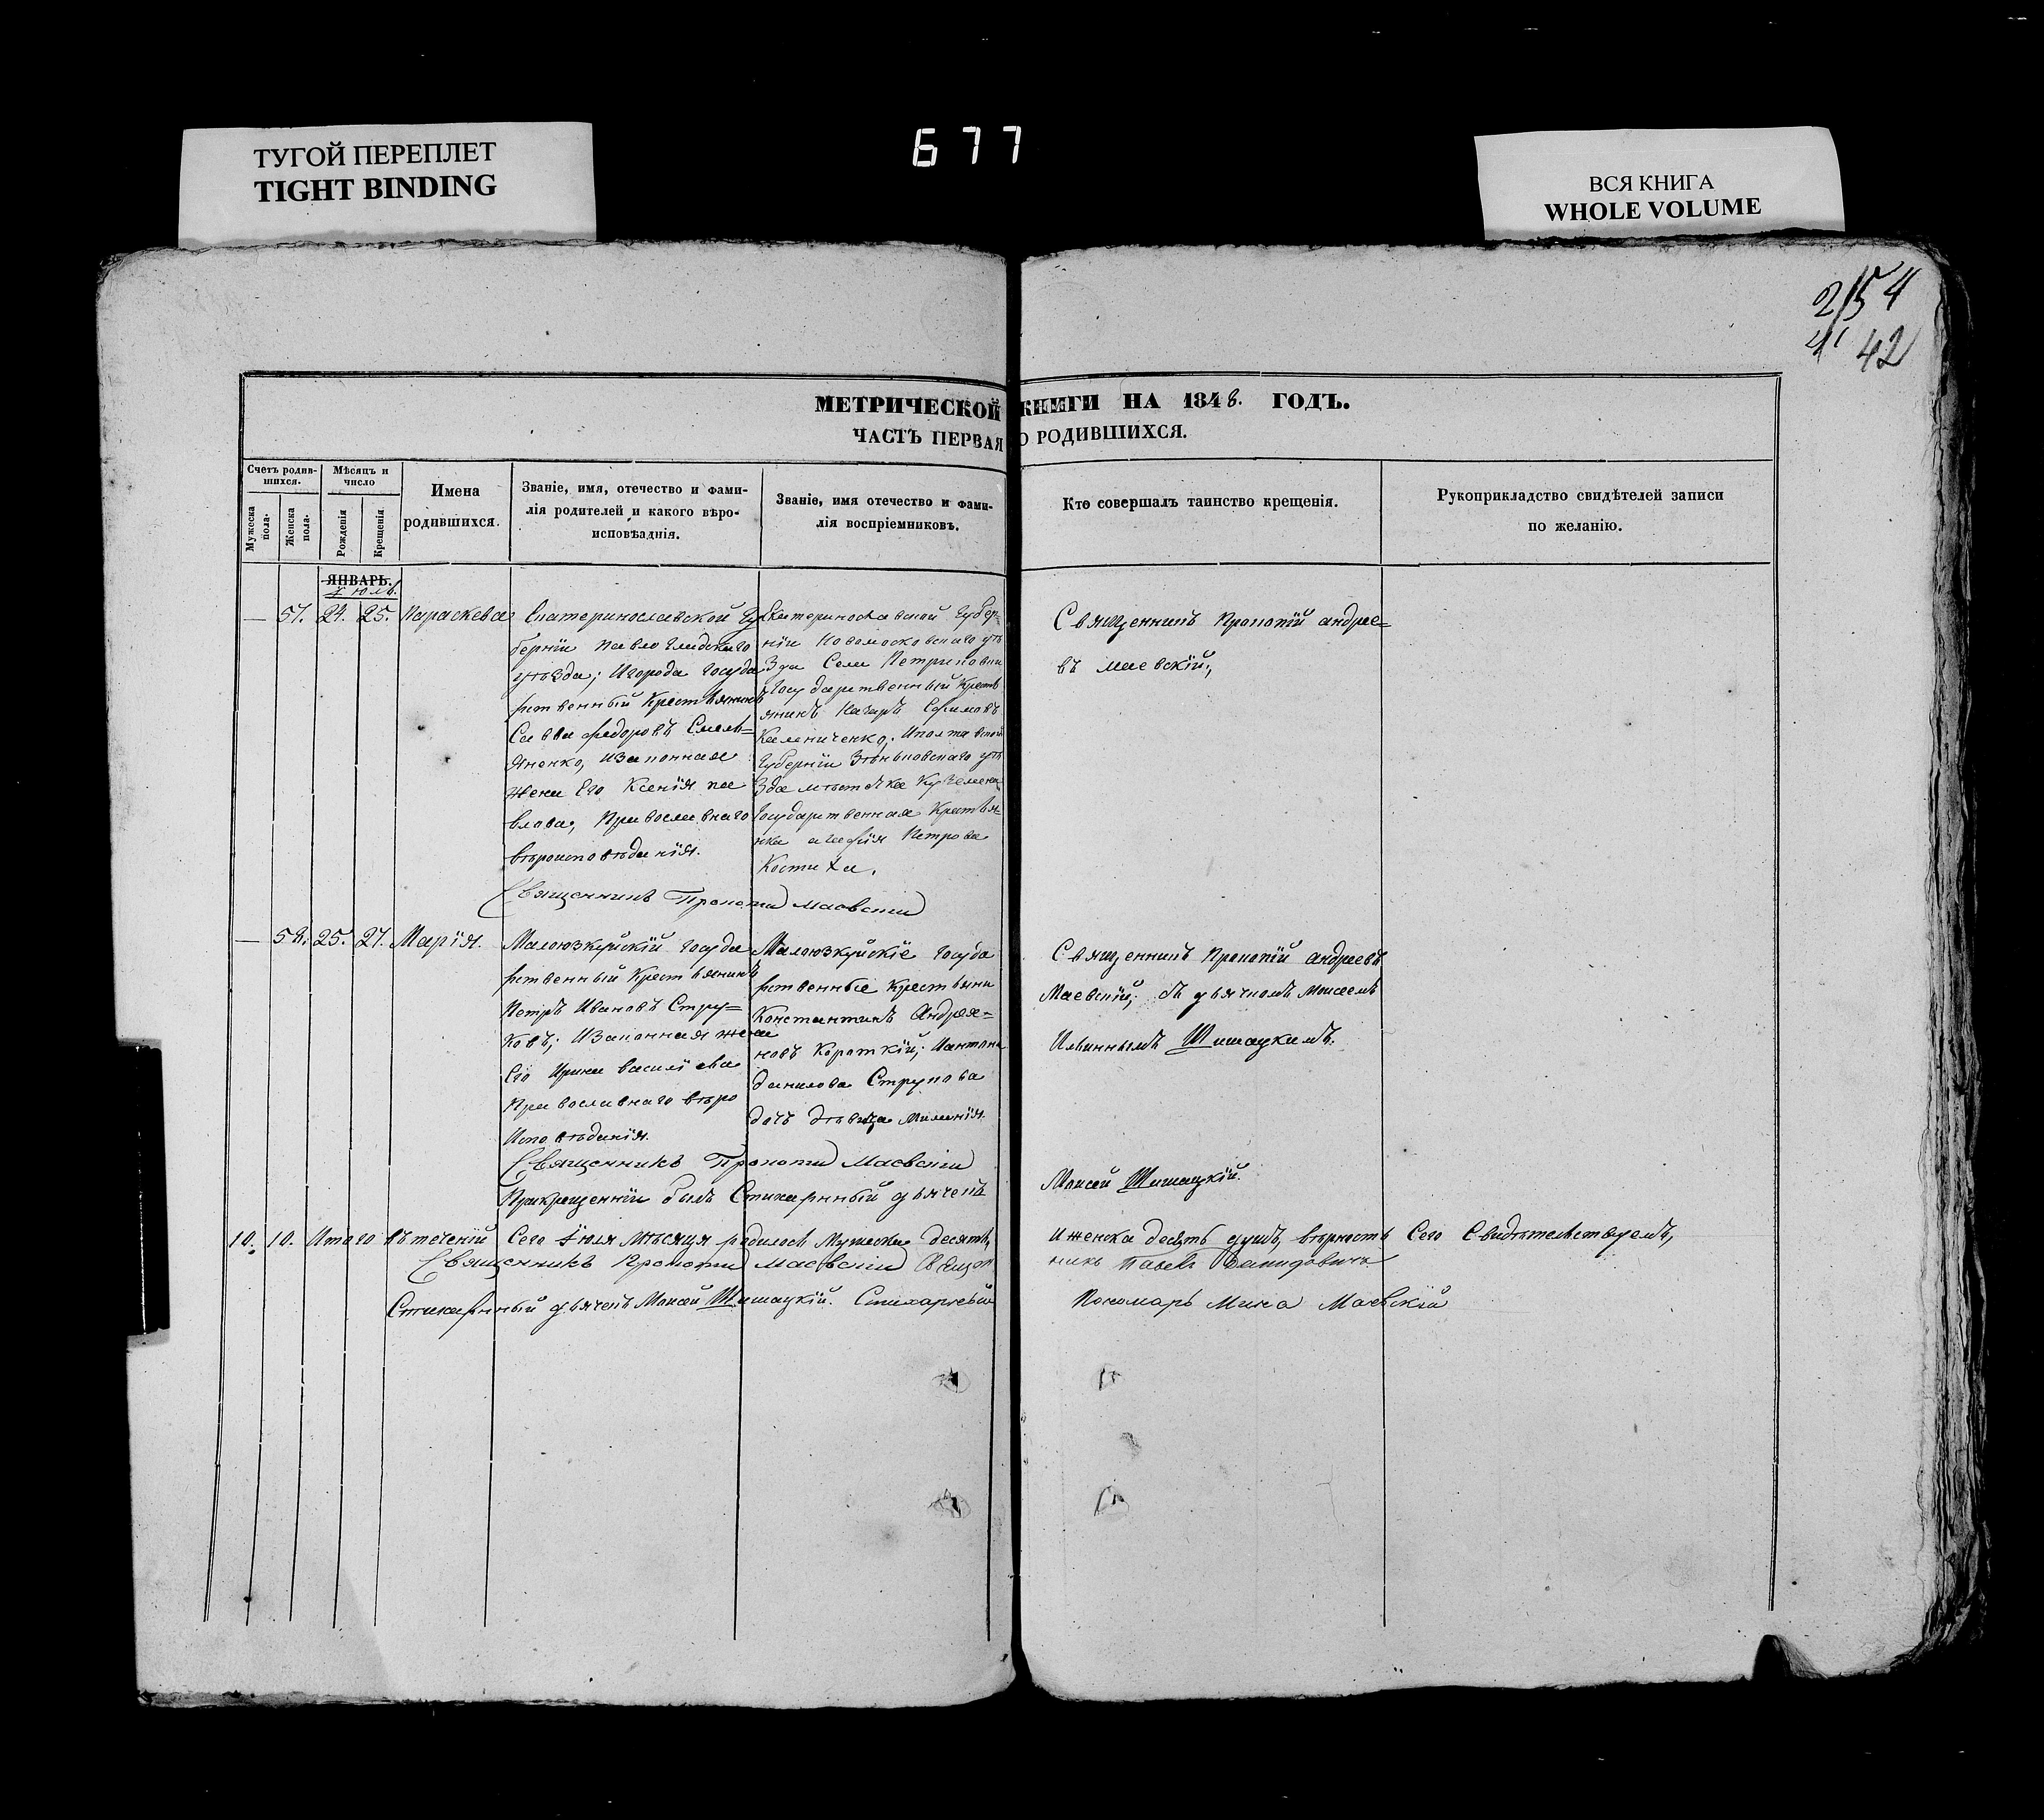 ТУГОЙ ПЕРЕПЛЕТ
TIGHT BINDING
677
ВСЯ КНИГА
WHOLE VOLUME
42
МЕТРИЧЕСКОЙ КНИГИ НА 1848. ГОДЪ.
ЧАСТЬ ПЕРВАЯ О РОДИВШИХСЯ.
Счетъ родив-
шихся.
Мужеска пола.
Женска пола.
Мѣсяцъ и
число
Рожденія
Крещенія
Имена
родившихся.
Званіе, имя, отечество и фами-
лія родителей и какого вѣро-
исповѣданія.
Званіе, имя отечество и фами-
лія воспріемниковъ.
Кто совершалъ таинство крещенія.
Рукоприкладство свидѣтелей записи
по желанію.
ЯНВАРЬ.
Іюль.
— 57. 24. 25. Параскева
Екатеринославской Гу
берніи Павлоградскаго
уѣзда; Игорода Госуда
рственный Крестьянинъ
Савва Федоровъ Смель=
яненко, Изаконная
жена Его Ксенія Па
влова, Православнаго
вѣроисповѣданія.
Екатеринославской Губер=
ніи Новомосковскаго уѣ
зда Села Петриковки
Государственный Кресть
янинъ Назаръ Ефимовъ
Калениченко; Иполтавской
Губерніи Зѣньковскаго уѣ
зда мѣстечка Куземена
Государственная Крестья=
нка Агафія Петрова
Костиха.
Священникъ Прокопій Андрее=
въ Маевскій;
Священникъ Прокопій Маевскій
— 58. 25. 27. Марія.
Малоюзкуйскій Госуда
рственный Крестьянинъ
Петръ Ивановъ Стру=
ковъ; Изаконная жена
Его Ирина Василіева
Православнаго вѣро
Исповѣданія.
Малоюзкуйскіе Госуда
рственные Крестьяни
Константинъ Андрея=
новъ Короткій; Иантона
Данилова Струкова
дочь дѣвица Миланія.
Священникъ Прокопій Андреевъ
Маевскій; съ дьячкомъ Моисеемъ
Ильинымъ Шишацкимъ.
Священникъ Прокопій Маевскій
Прикрещеніи былъ Стихарный дьячекъ
Моисей Шишацкій.
10. 10. Итого въ теченіи Сего Іюля Мѣсяця родилось Мужеска десять,
иженска десять душъ, вѣрность Сего Свидѣтельствуемъ,
Священникъ Прокопій Маевскій Священ
никъ Павелъ Демидовичъ
Стихарный дьячекъ Моисей Шишацкій. Стихарный
Пономарь Мина Маевскій